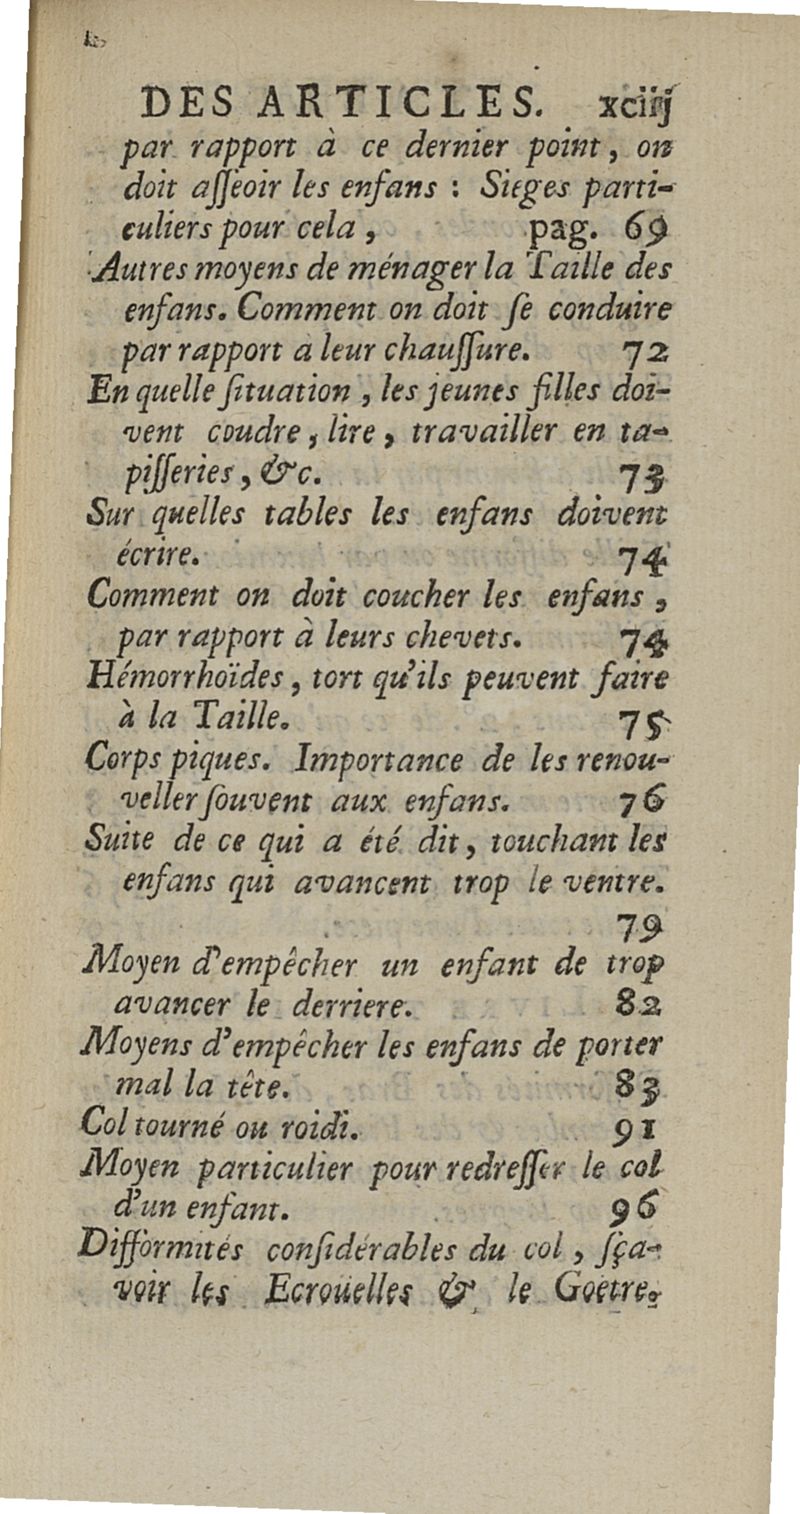 DES ARTICLES. xciij
par rapport à ce dernier point, on
doit aſſeoir les enfans : Sieges parti-
culiers pour cela, pag. 69
Autres moyens de ménager la Taille des
enfans. Comment on doit ſe conduire
par rapport à leur chauſſure. 72
En quelle ſituation, les jeunes filles doi-
vent coudre, lire, travailler en ta-
piſſeries, &c. 73
Sur quelles tables les enfans doivent
écrire. 74
Comment on doit coucher les enfans,
par rapport à leurs chevets. 74
Hémorrhoïdes, tort qu'ils peuvent faire
à la Taille. 75
Corps piques. Importance de les renou-
veller ſouvent aux enfans. 76
Suite de ce qui a été dit, touchant les
enfans qui avancent trop le ventre.
79
Moyen d'empêcher un enfant de trop
avancer le derriere. 82
Moyens d'empêcher les enfans de porter
mal la tête. 83
Col tourné ou roidi. 91
Moyen particulier pour redreſſer le col
d'un enfant. 96
Difformités conſidérables du col, ſça-
voir les Ecrouelles & le Goetre.